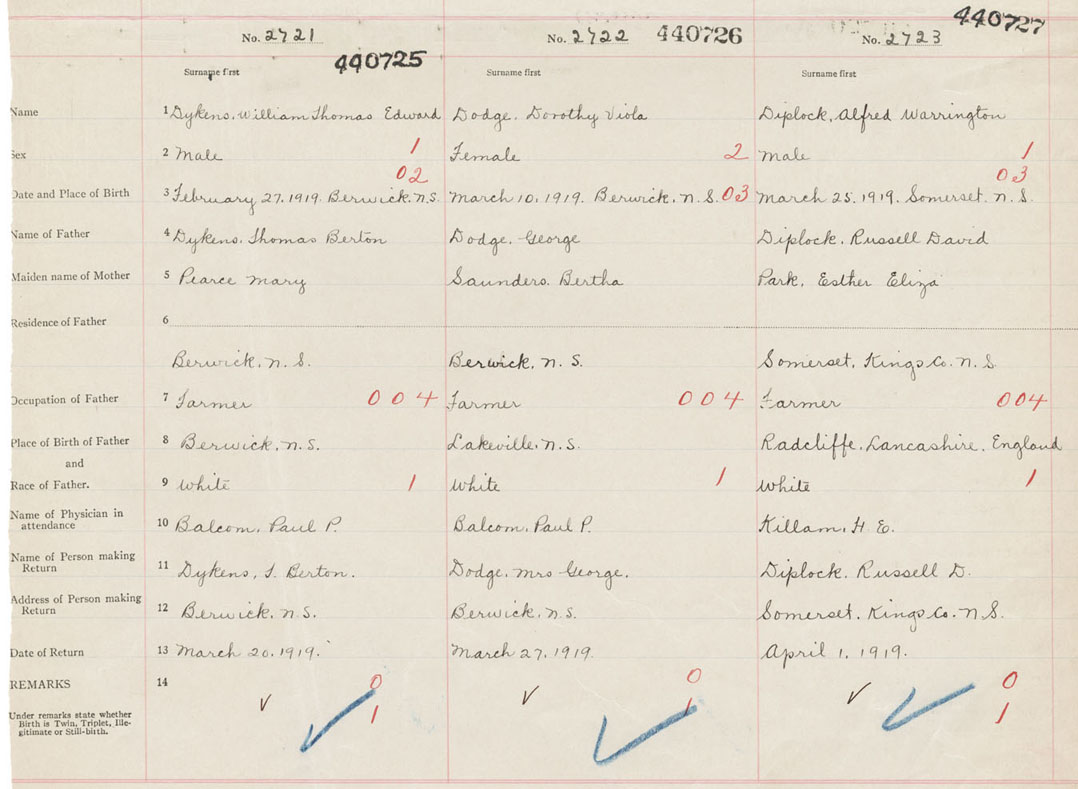 No. 2721 440725 No. 2722 440726 No. 2723 440727
Surname first Surname first Surname first
Name 1 Dykens, William Thomas Edward Dodge, Dorothy Viola Diplock, Alfred Warrington
Sex 2 Male 1 Female 2 Male 1
02 03
Date and Place of Birth 3 February 27, 1919. Berwick. N.S. March 10, 1919. Berwick, N.S. 03 March 25, 1919. Somerset. N.S.
Name of Father 4 Dykens, Thomas Berton Dodge, George Diplock, Russell David
Maiden name of Mother 5 Pearce Mary Saunders, Bertha Park, Esther Eliza
Residence of Father 6
Berwick, N.S. Berwick, N.S. Somerset, Kings Co. N.S.
Occupation of Father 7 Farmer 004 Farmer 004 Farmer 004
Place of Birth of Father 8 Berwick, N.S. Lakeville, N.S. Radcliffe, Lancashire, England
and
Race of Father. 9 White 1 White 1 White 1
Name of Physician in
attendance 10 Balcom, Paul P. Balcom, Paul P. Killam, H.E.
Name of Person making
Return 11 Dykens, T. Berton. Dodge, Mrs George. Diplock, Russell D.
Address of Person making
Return 12 Berwick, N.S. Berwick, N.S. Somerset, Kings Co. N.S.
Date of Return 13 March 20, 1919. March 27, 1919. April 1, 1919.
REMARKS 14 0 0 0
Under remarks state whether
Birth is Twin, Triplet, Ille-
gitimate or Still-birth. 1 1 1